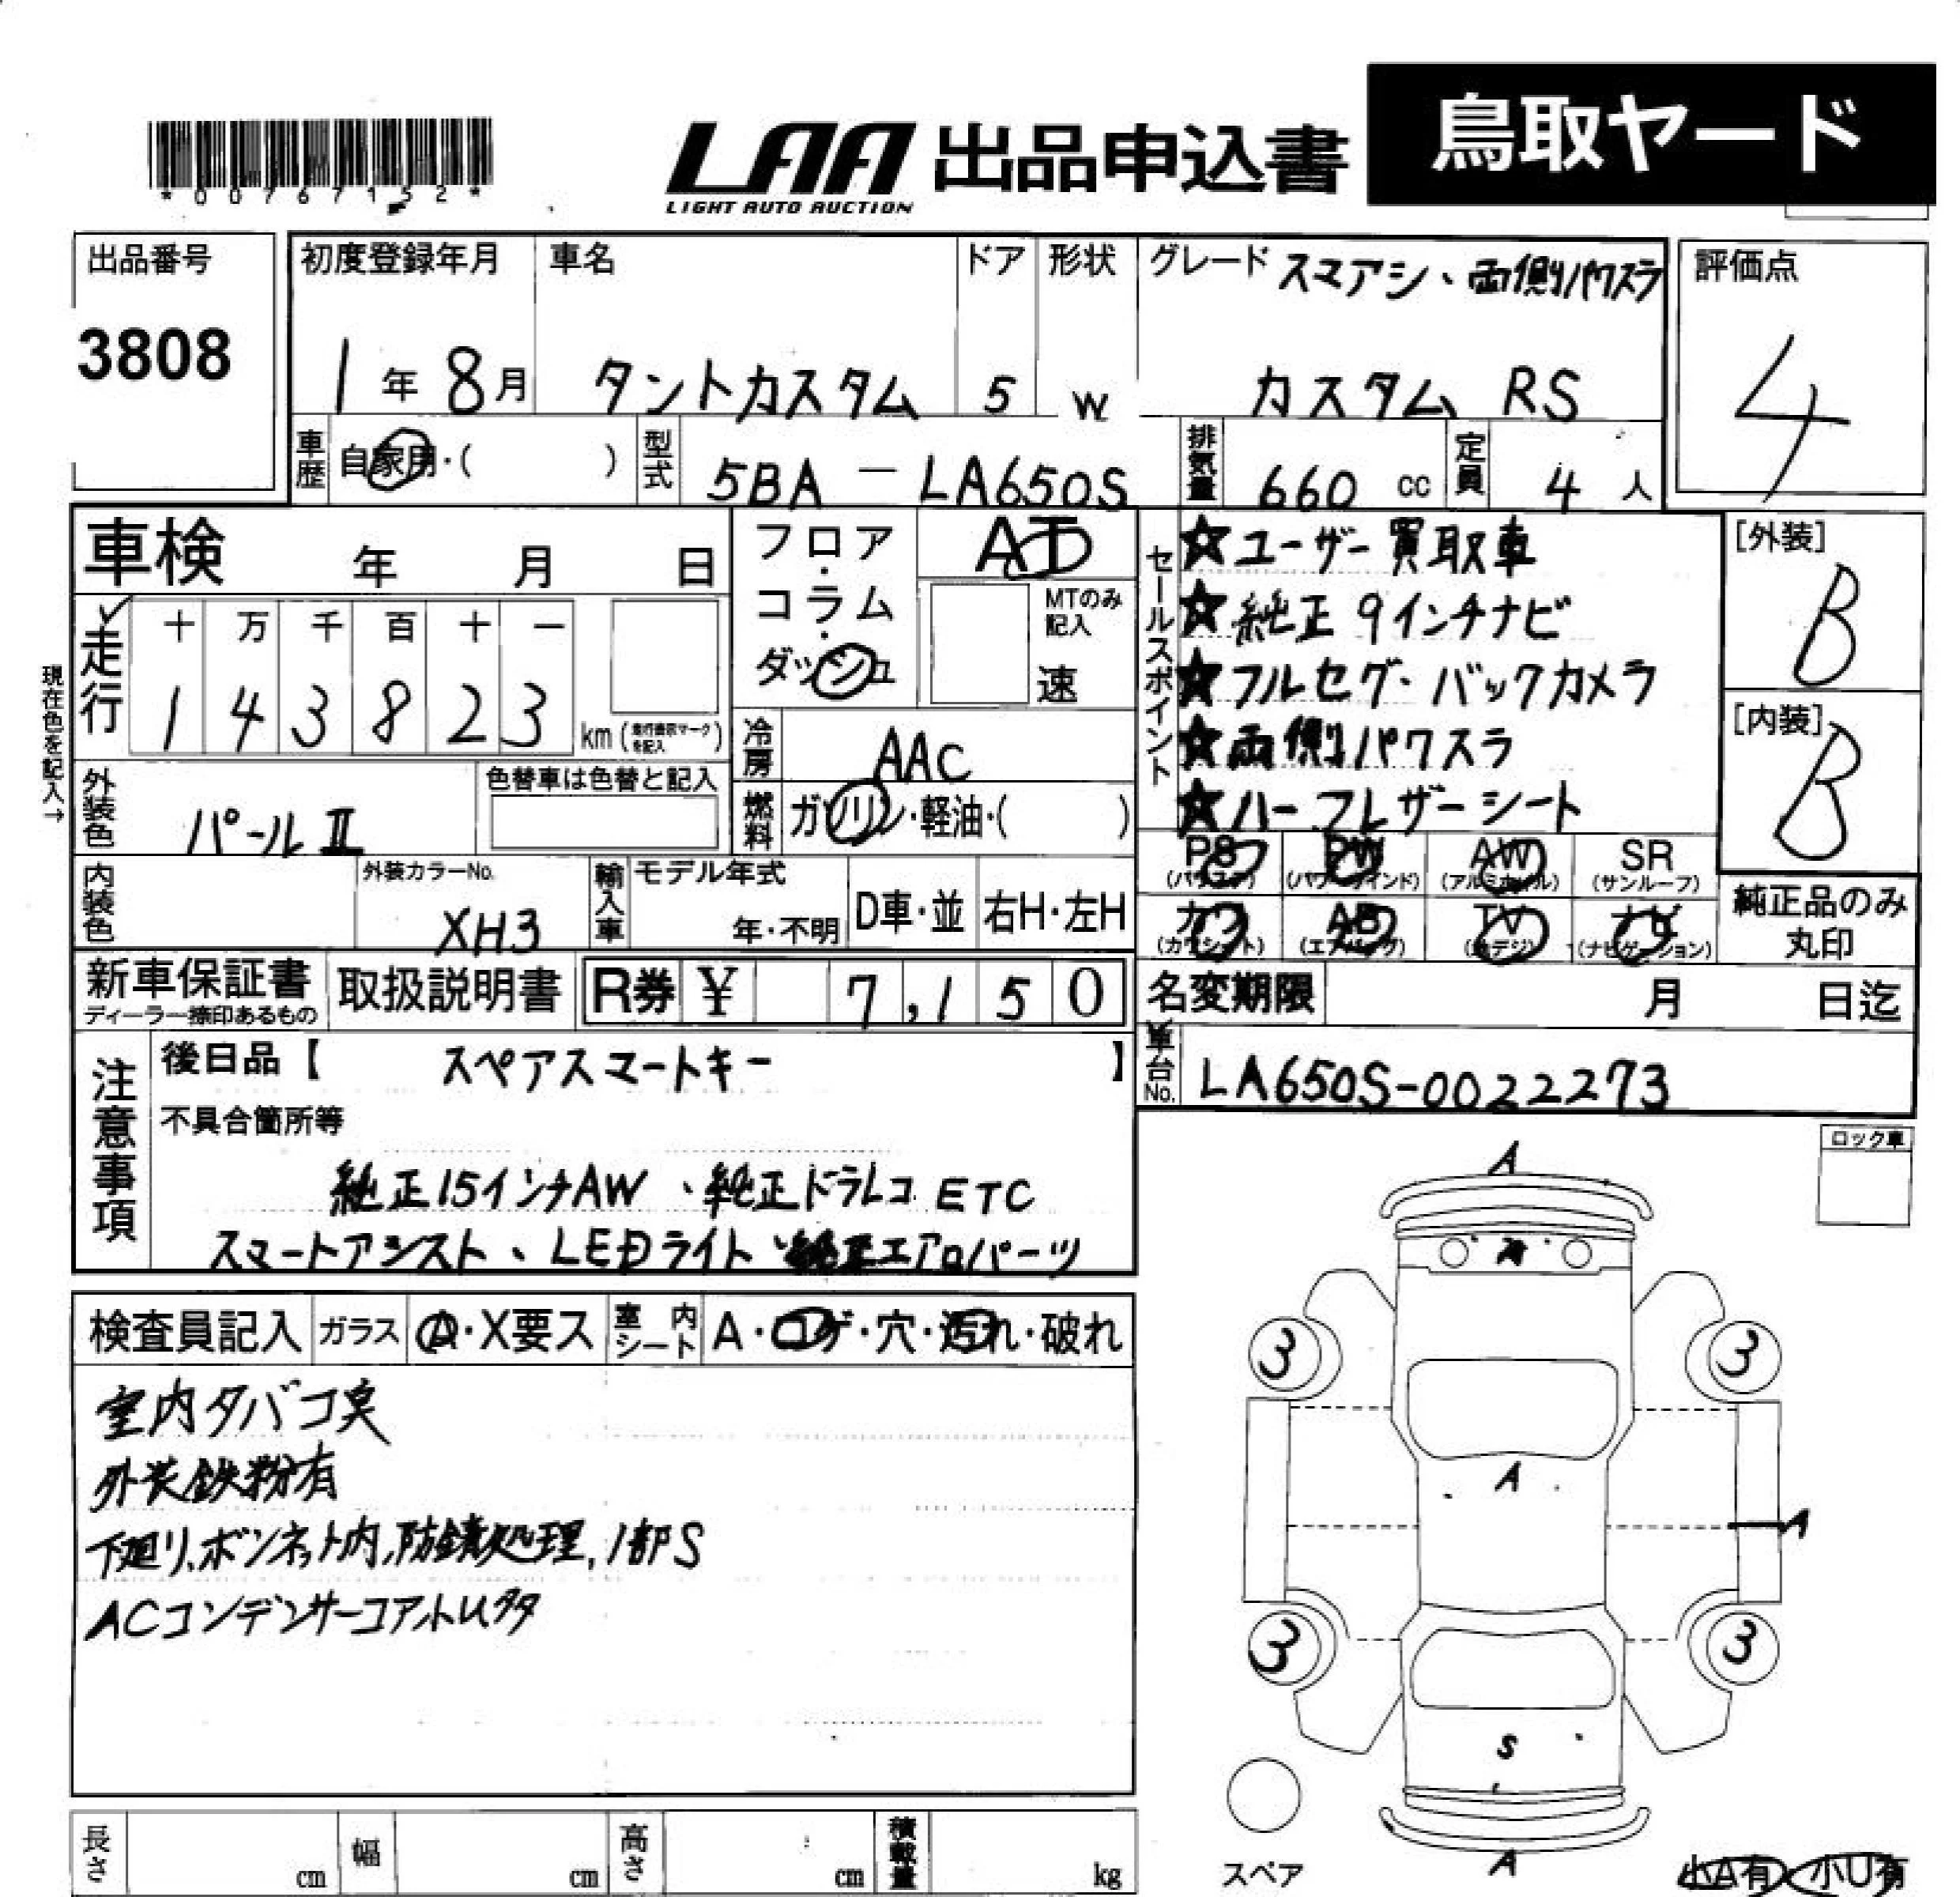 鳥取ヤード
LAA 出品申込書
LIGHT AUTO AUCTION
*00767152*
出品番号
3808
初度登録年月
1年 8月
車名
タントカスタム
ドア
5
形状
W
グレード スマアシ、両側パワスラ
カスタム RS
評価点
4
車歴 自家用・( )
型式 5BA - LA650S
排気量 660 cc
定員 4 人
車検 年 月 日
フロア・コラム・ダッシュ
AT
MTのみ記入
速
セールスポイント
☆ユーザー買取車
☆純正9インチナビ
☆フルセグ・バックカメラ
☆両側パワスラ
☆ハーフレザーシート
[外装]
B
[内装]
B
現在色を記入→
走行
十 万 千 百 十 一
1 4 3 8 2 3 km (走行表示マークを記入)
冷房 AAC
外装色 パールⅡ
色替車は色替と記入
燃料 ガソリン・軽油・( )
PS (パワステ)
PW (パワーウインド)
AW (アルミホイル)
SR (サンルーフ)
カワ (カワシート)
AB (エアバック)
TV (地デジ)
ナビ (ナビゲーション)
純正品のみ丸印
内装色
外装カラーNo. XH3
輸入車 モデル年式
年・不明
D車・並
右H・左H
新車保証書
ディーラー捺印あるもの
取扱説明書
R券 ¥ 7,150
名変期限 月 日迄
車台No. LA650S-0022273
注意事項
後日品【 スペアスマートキー 】
不具合箇所等
純正15インチAW、純正ドラレコ ETC
スマートアシスト、LEDライト、純正エアロパーツ
ロック車
検査員記入
ガラス A・X要ス
室内シート A・コゲ・穴・汚れ・破れ
室内タバコ臭
外装鉄粉有
下廻り、ボンネット内、防錆処理、1部S
ACコンデンサーコア、トU多
A
A
3 3
A
A
3 3
S
A
スペア
小A有 小U有
長さ cm
幅 cm
高さ cm
積載量 kg